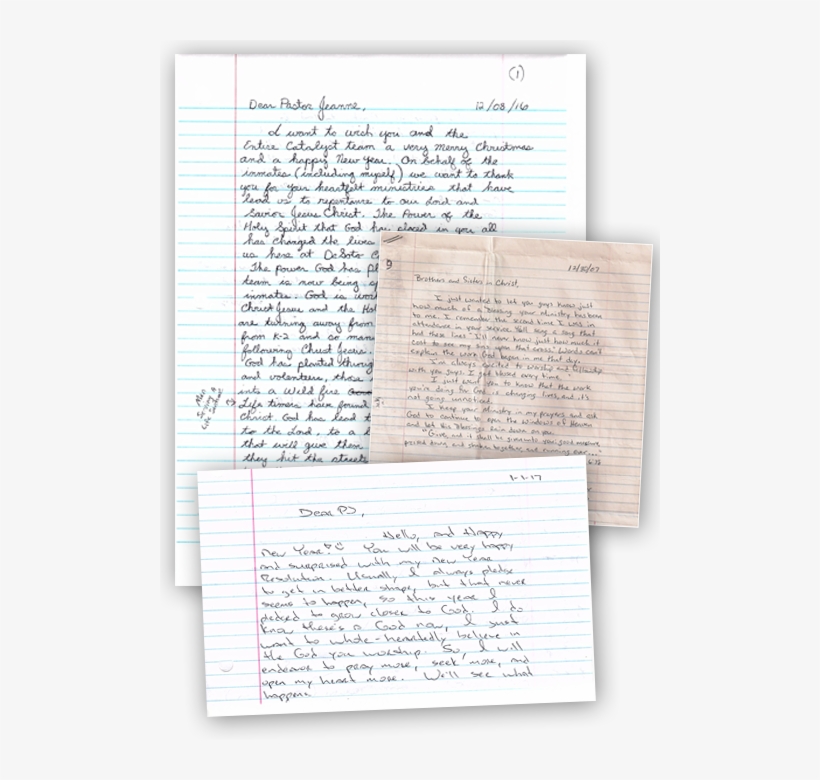 (1)
Dear Pastor Jeanne, 12/08/16
I want to wish you and the
Entire Catalyst team a very merry Christmas
and a happy New year. On behalf of the
inmates (including myself) we want to thank
you for your heartfelt ministries that have
lead us to repentance to our Lord and
Savior Jesus Christ. The Power of the
Holy Spirit that God has placed in you all
has changed the lives
us here at DeSoto C
The power God has pl
team is now being
inmates. God is
Christ Jesus and the Hol
are turning away from
from K-2 and so man
following Christ Jesus.
God has planted throug
and volunteers, those
into a wild fire
Life timers have found
Christ. God has lead
to the Lord, to a
that will give them
they hit the streets
Men
serving a
Life sentence
9
12/15/07
Brothers and Sisters in Christ,
I just wanted to let you guys know just
how much of a blessing your ministry has been
to me. I remember the second time I was in
attendance in your service. Yall sang a song that
had these lines "I'll never know just how much it
cost to see my sins upon that cross." Words can't
explain the work God began in me that day.
I'm always excited to worship and fellowship
with you guys. I get blessed every time.
I just want you to know that the work
you're doing for God is changing lives, and it's
not going unnoticed.
I keep your ministry in my prayers, and ask
God to continue to open the windows of Heaven
and let his blessings rain down on you.
"Give, and it shall be given unto you; good measure,
pressed down, and shaken together, and running over..."
6:38
1-1-17
Dear PJ,
Hello, and Happy
New Year! You will be very happy
and surprised with my New Year
Resolution. Usually I always pledge
to get in better shape, but that never
seems to happen, so this year I
pledged to grow closer to God. I do
know there's a God now, I just
want to whole-heartedly believe in
the God you worship. So, I will
endeavor to pray more, seek more, and
open my heart more. We'll see what
happens.